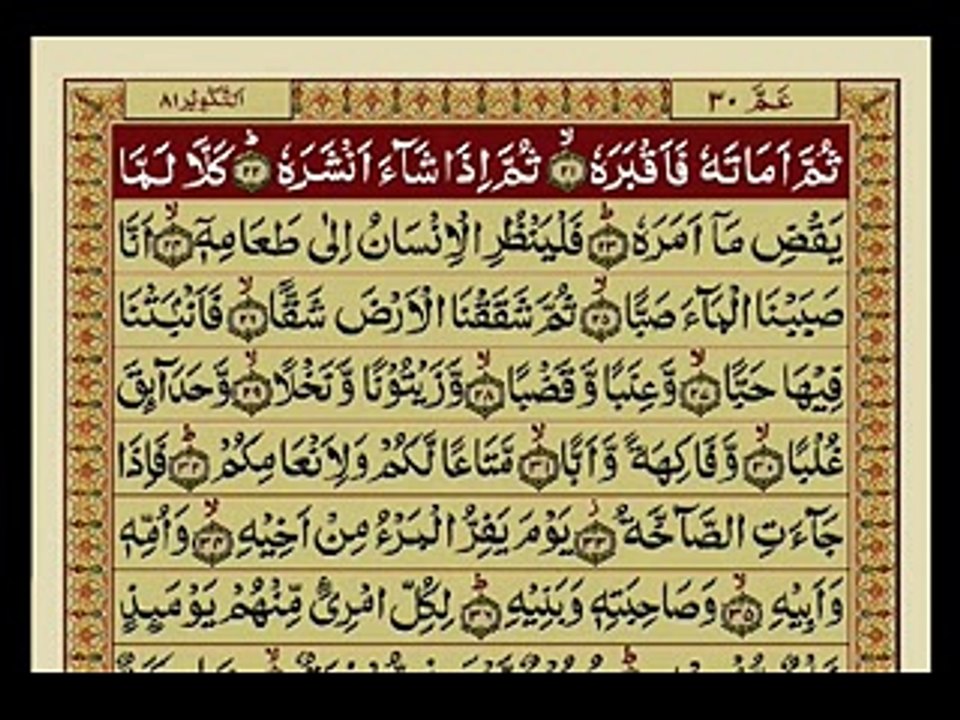 عَمَّ ٣٠
اَلتَّكْوِيْر ٨١
ثُمَّ اَمَاتَهٗ فَاَقْبَرَهٗ ۙ‏﴿٢١﴾ ثُمَّ اِذَا شَآءَ اَنْشَرَهٗ ؕ‏﴿٢٢﴾ كَلَّا لَمَّا
يَقْضِ مَاۤ اَمَرَهٗ ؕ‏﴿٢٣﴾ فَلْيَنْظُرِ الْاِنْسَانُ اِلٰى طَعَامِهٖۤ ۙ‏﴿٢٤﴾ اَنَّا
صَبَبْنَا الْمَآءَ صَبًّا ۙ‏﴿٢٥﴾ ثُمَّ شَقَقْنَا الْاَرْضَ شَقًّا ۙ‏﴿٢٦﴾ فَاَنْۢبَتْنَا
فِيْهَا حَبًّا ۙ‏﴿٢٧﴾ وَّعِنَبًا وَّ قَضْبًا ۙ‏﴿٢٨﴾ وَّزَيْتُوْنًا وَّنَخْلًا ۙ‏﴿٢٩﴾ وَّحَدَآئِقَ
غُلْبًا ۙ‏﴿٣٠﴾ وَّفَاكِهَةً وَّاَبًّا ۙ‏﴿٣١﴾ مَّتَاعًا لَّكُمْ وَلِاَنْعَامِكُمْ ؕ‏﴿٣٢﴾ فَاِذَا
جَآءَتِ الصَّآخَّةُ ۫‏﴿٣٣﴾ يَوْمَ يَفِرُّ الْمَرْءُ مِنْ اَخِيْهِ ۙ‏﴿٣٤﴾ وَاُمِّهٖ
وَاَبِيْهِ ۙ‏﴿٣٥﴾ وَصَاحِبَتِهٖ وَبَنِيْهِ ؕ‏﴿٣٦﴾ لِكُلِّ امْرِئٍ مِّنْهُمْ يَوْمَئِذٍ